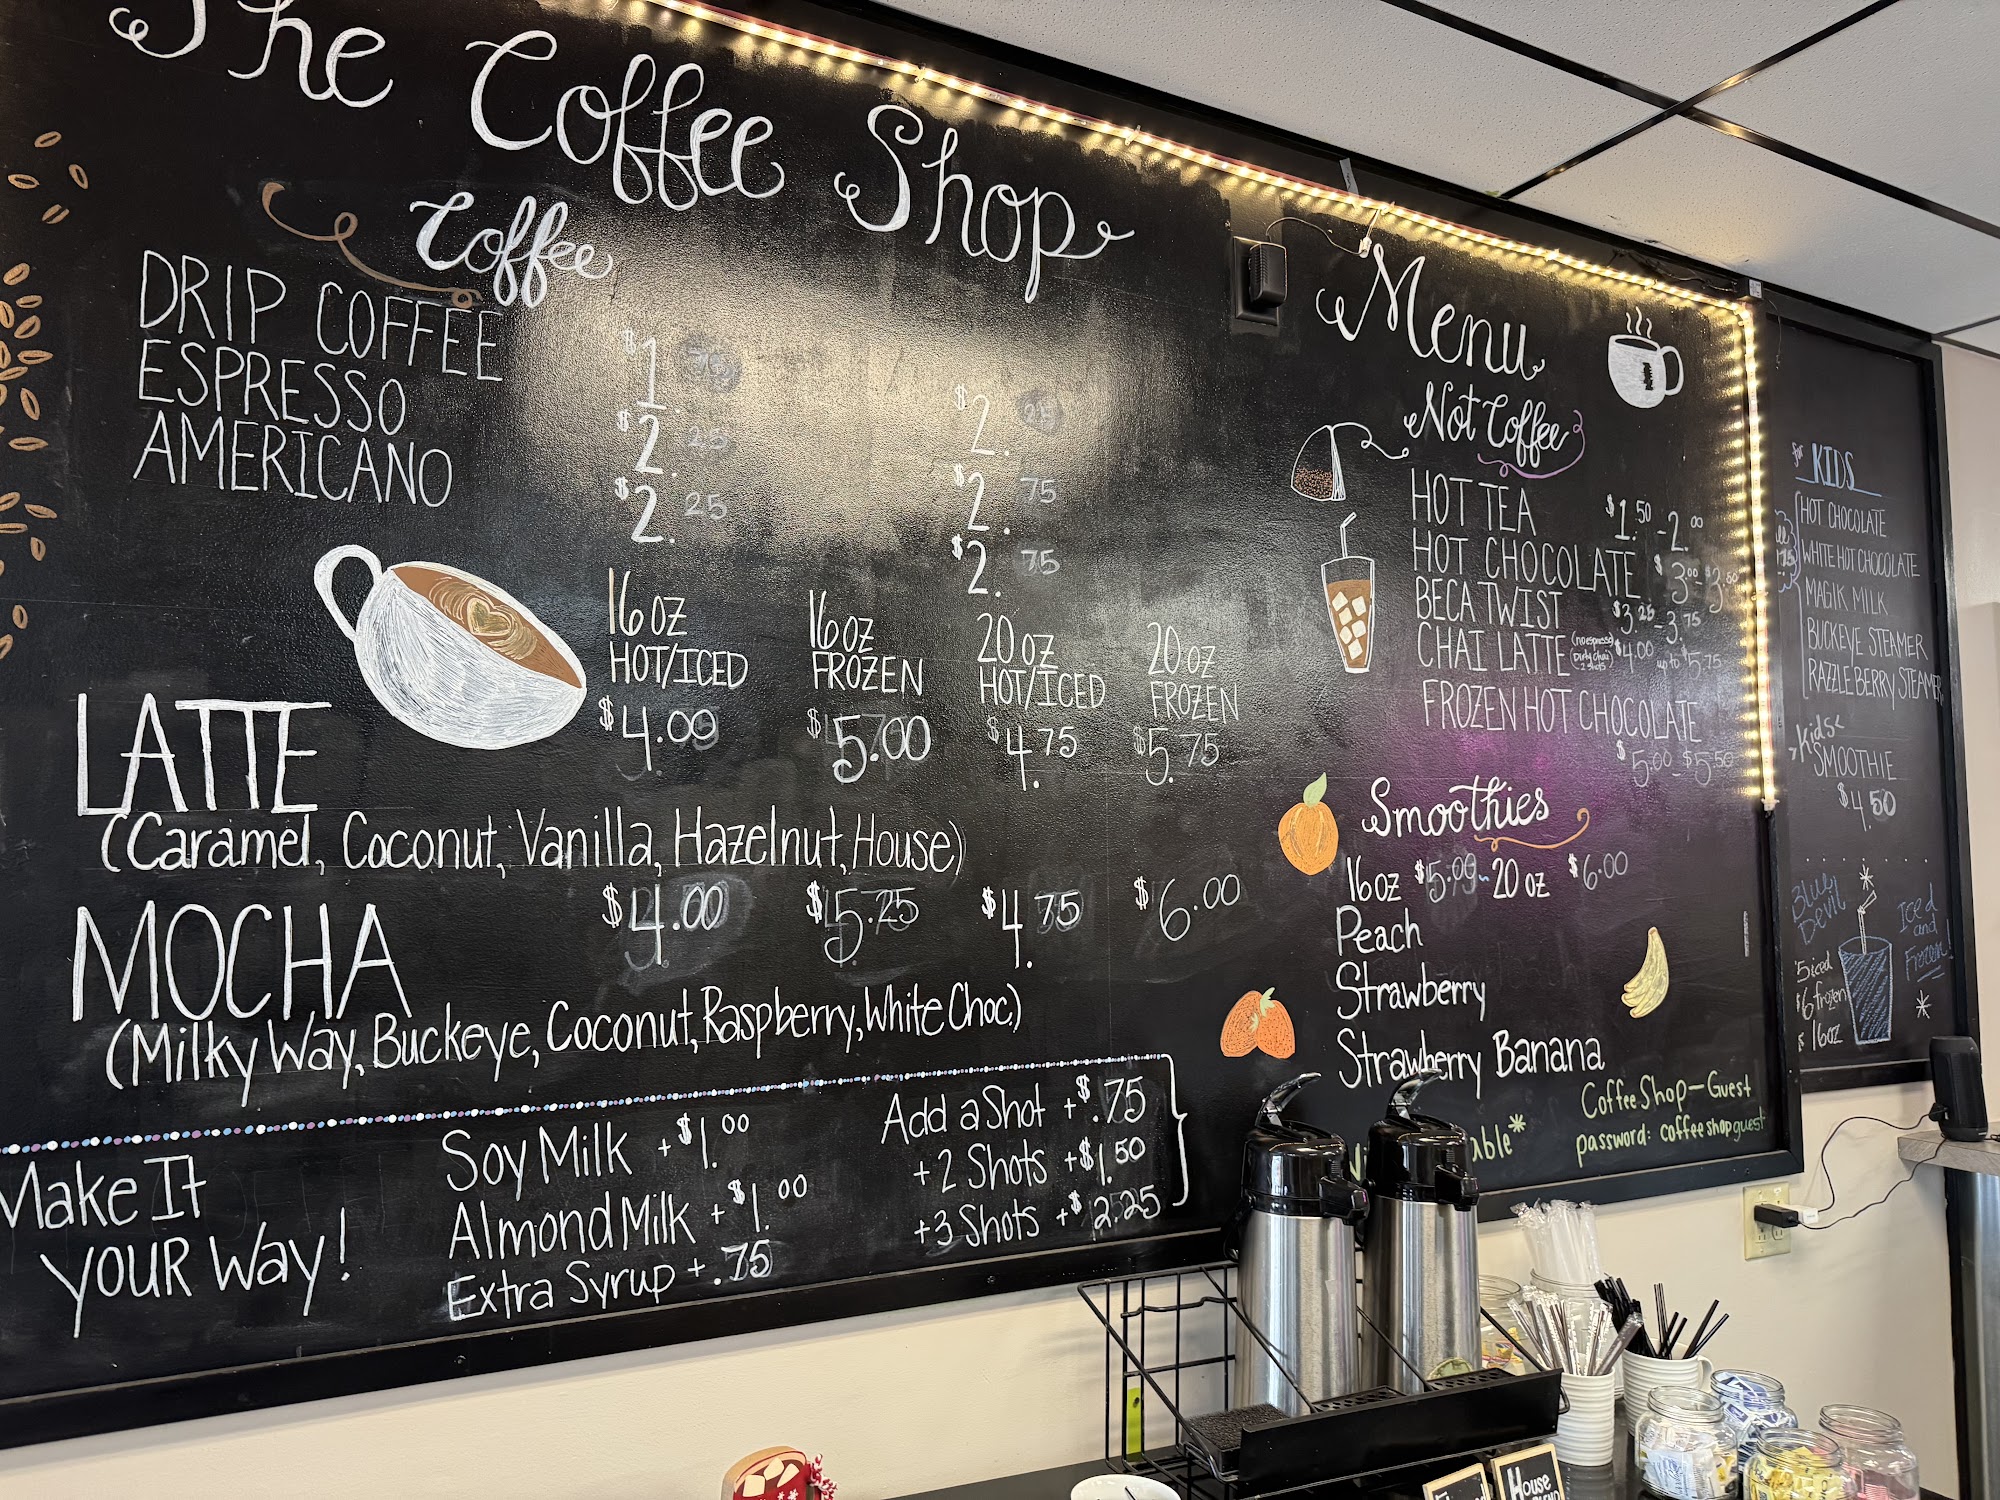 The Coffee Shop
Menu
Coffee
DRIP COFFEE $1.75 $2.25
ESPRESSO $2.25 $2.75
AMERICANO $2.25 $2.75
16 oz HOT/ICED
16 oz FROZEN
20 oz HOT/ICED
20 oz FROZEN
LATTE $4.00 $5.00 $4.75 $5.75
(Caramel, Coconut, Vanilla, Hazelnut, House)
MOCHA $4.00 $5.25 $4.75 $6.00
(Milky Way, Buckeye, Coconut, Raspberry, White Choc.)
Make It
YOUR Way!
Soy Milk +$1.00
Almond Milk +$1.00
Extra Syrup +.75
Add a Shot +$.75
+2 Shots +$1.50
+3 Shots +$2.25
Not Coffee
HOT TEA $1.50-2.00
HOT CHOCOLATE $3.00-$3.50
BECA TWIST $3.25-3.75
CHAI LATTE (no espresso) $4.00 up to $5.75
Dirty chai
2 shots
FROZEN HOT CHOCOLATE
$5.00-$5.50
Smoothies
16 oz 20 oz $6.00
Peach
Strawberry
Strawberry Banana
able*
CoffeeShop-Guest
password: coffeeshopguest
for KIDS
HOT CHOCOLATE
WHITE HOT CHOCOLATE
MAGIK MILK
BUCKEYE STEAMER
RAZZLEBERRY STEAMER
Kids
SMOOTHIE
$4.50
Blue Devil
Iced and Frozen!
$5 iced
$6 frozen
16oz
HOUSE